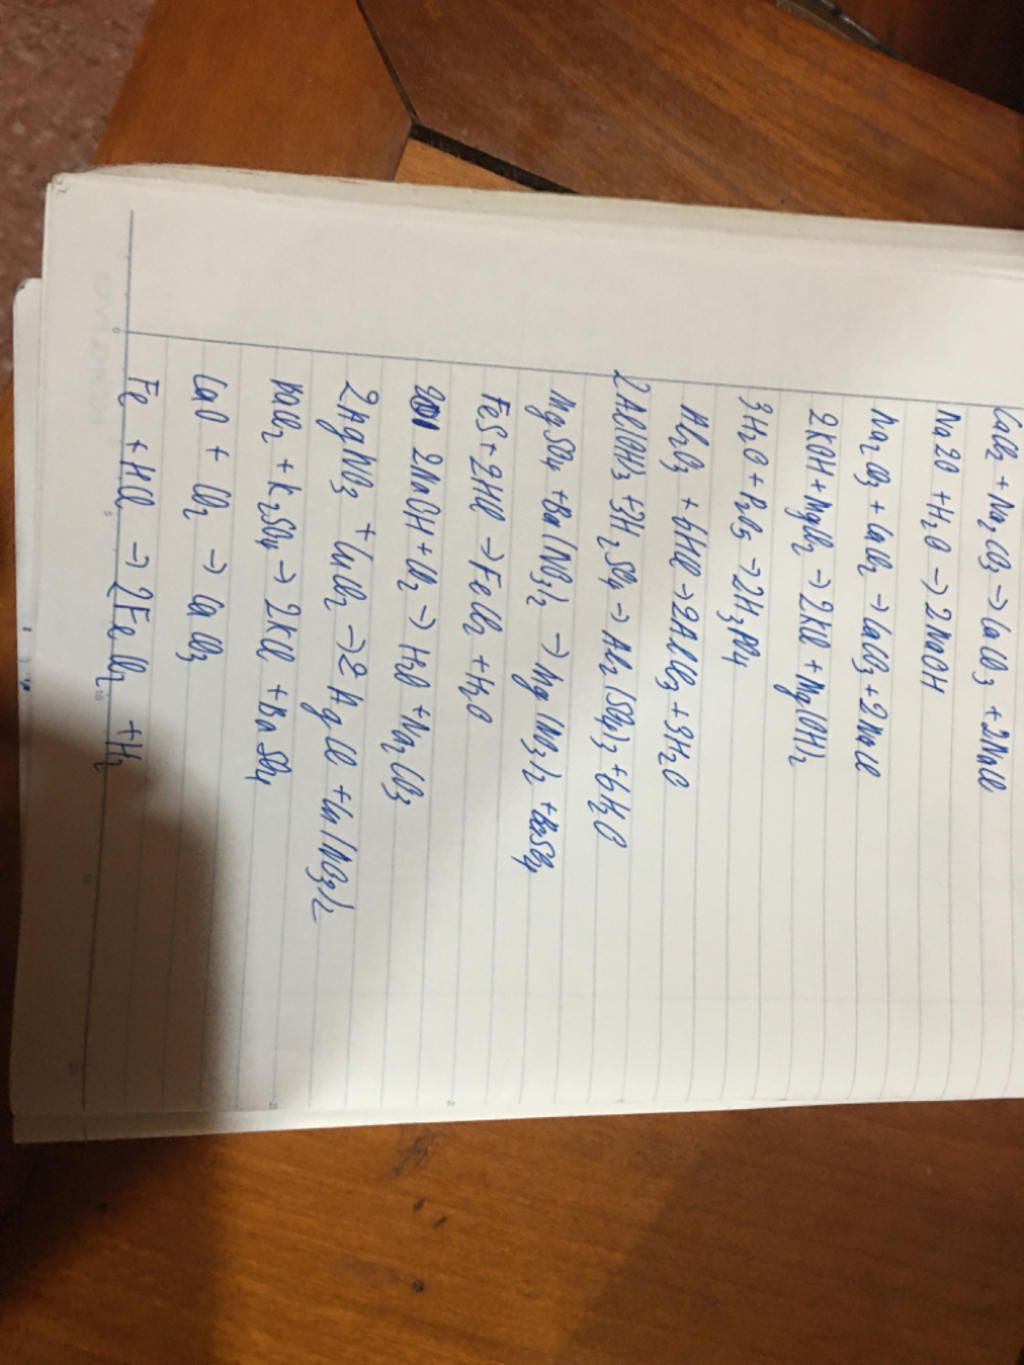 CaCl2 + Na2CO3 → CaCO3 + 2NaCl
Na2O + H2O → 2NaOH
Na2CO3 + CaCl2 → CaCO3 + 2NaCl
2KOH + MgCl2 → 2KCl + Mg(OH)2
3H2O + P2O5 → 2H3PO4
Al2O3 + 6HCl → 2AlCl3 + 3H2O
2Al(OH)3 + 3H2SO4 → Al2(SO4)3 + 6H2O
MgSO4 + Ba(NO3)2 → Mg(NO3)2 + BaSO4
FeS + 2HCl → FeCl2 + H2O
2NaOH + CO2 → H2O + Na2CO3
2AgNO3 + CuCl2 → 2AgCl + Cu(NO3)2
BaCl2 + K2SO4 → 2KCl + BaSO4
CaO + CO2 → CaCO3
Fe + HCl → 2FeCl2 + H2